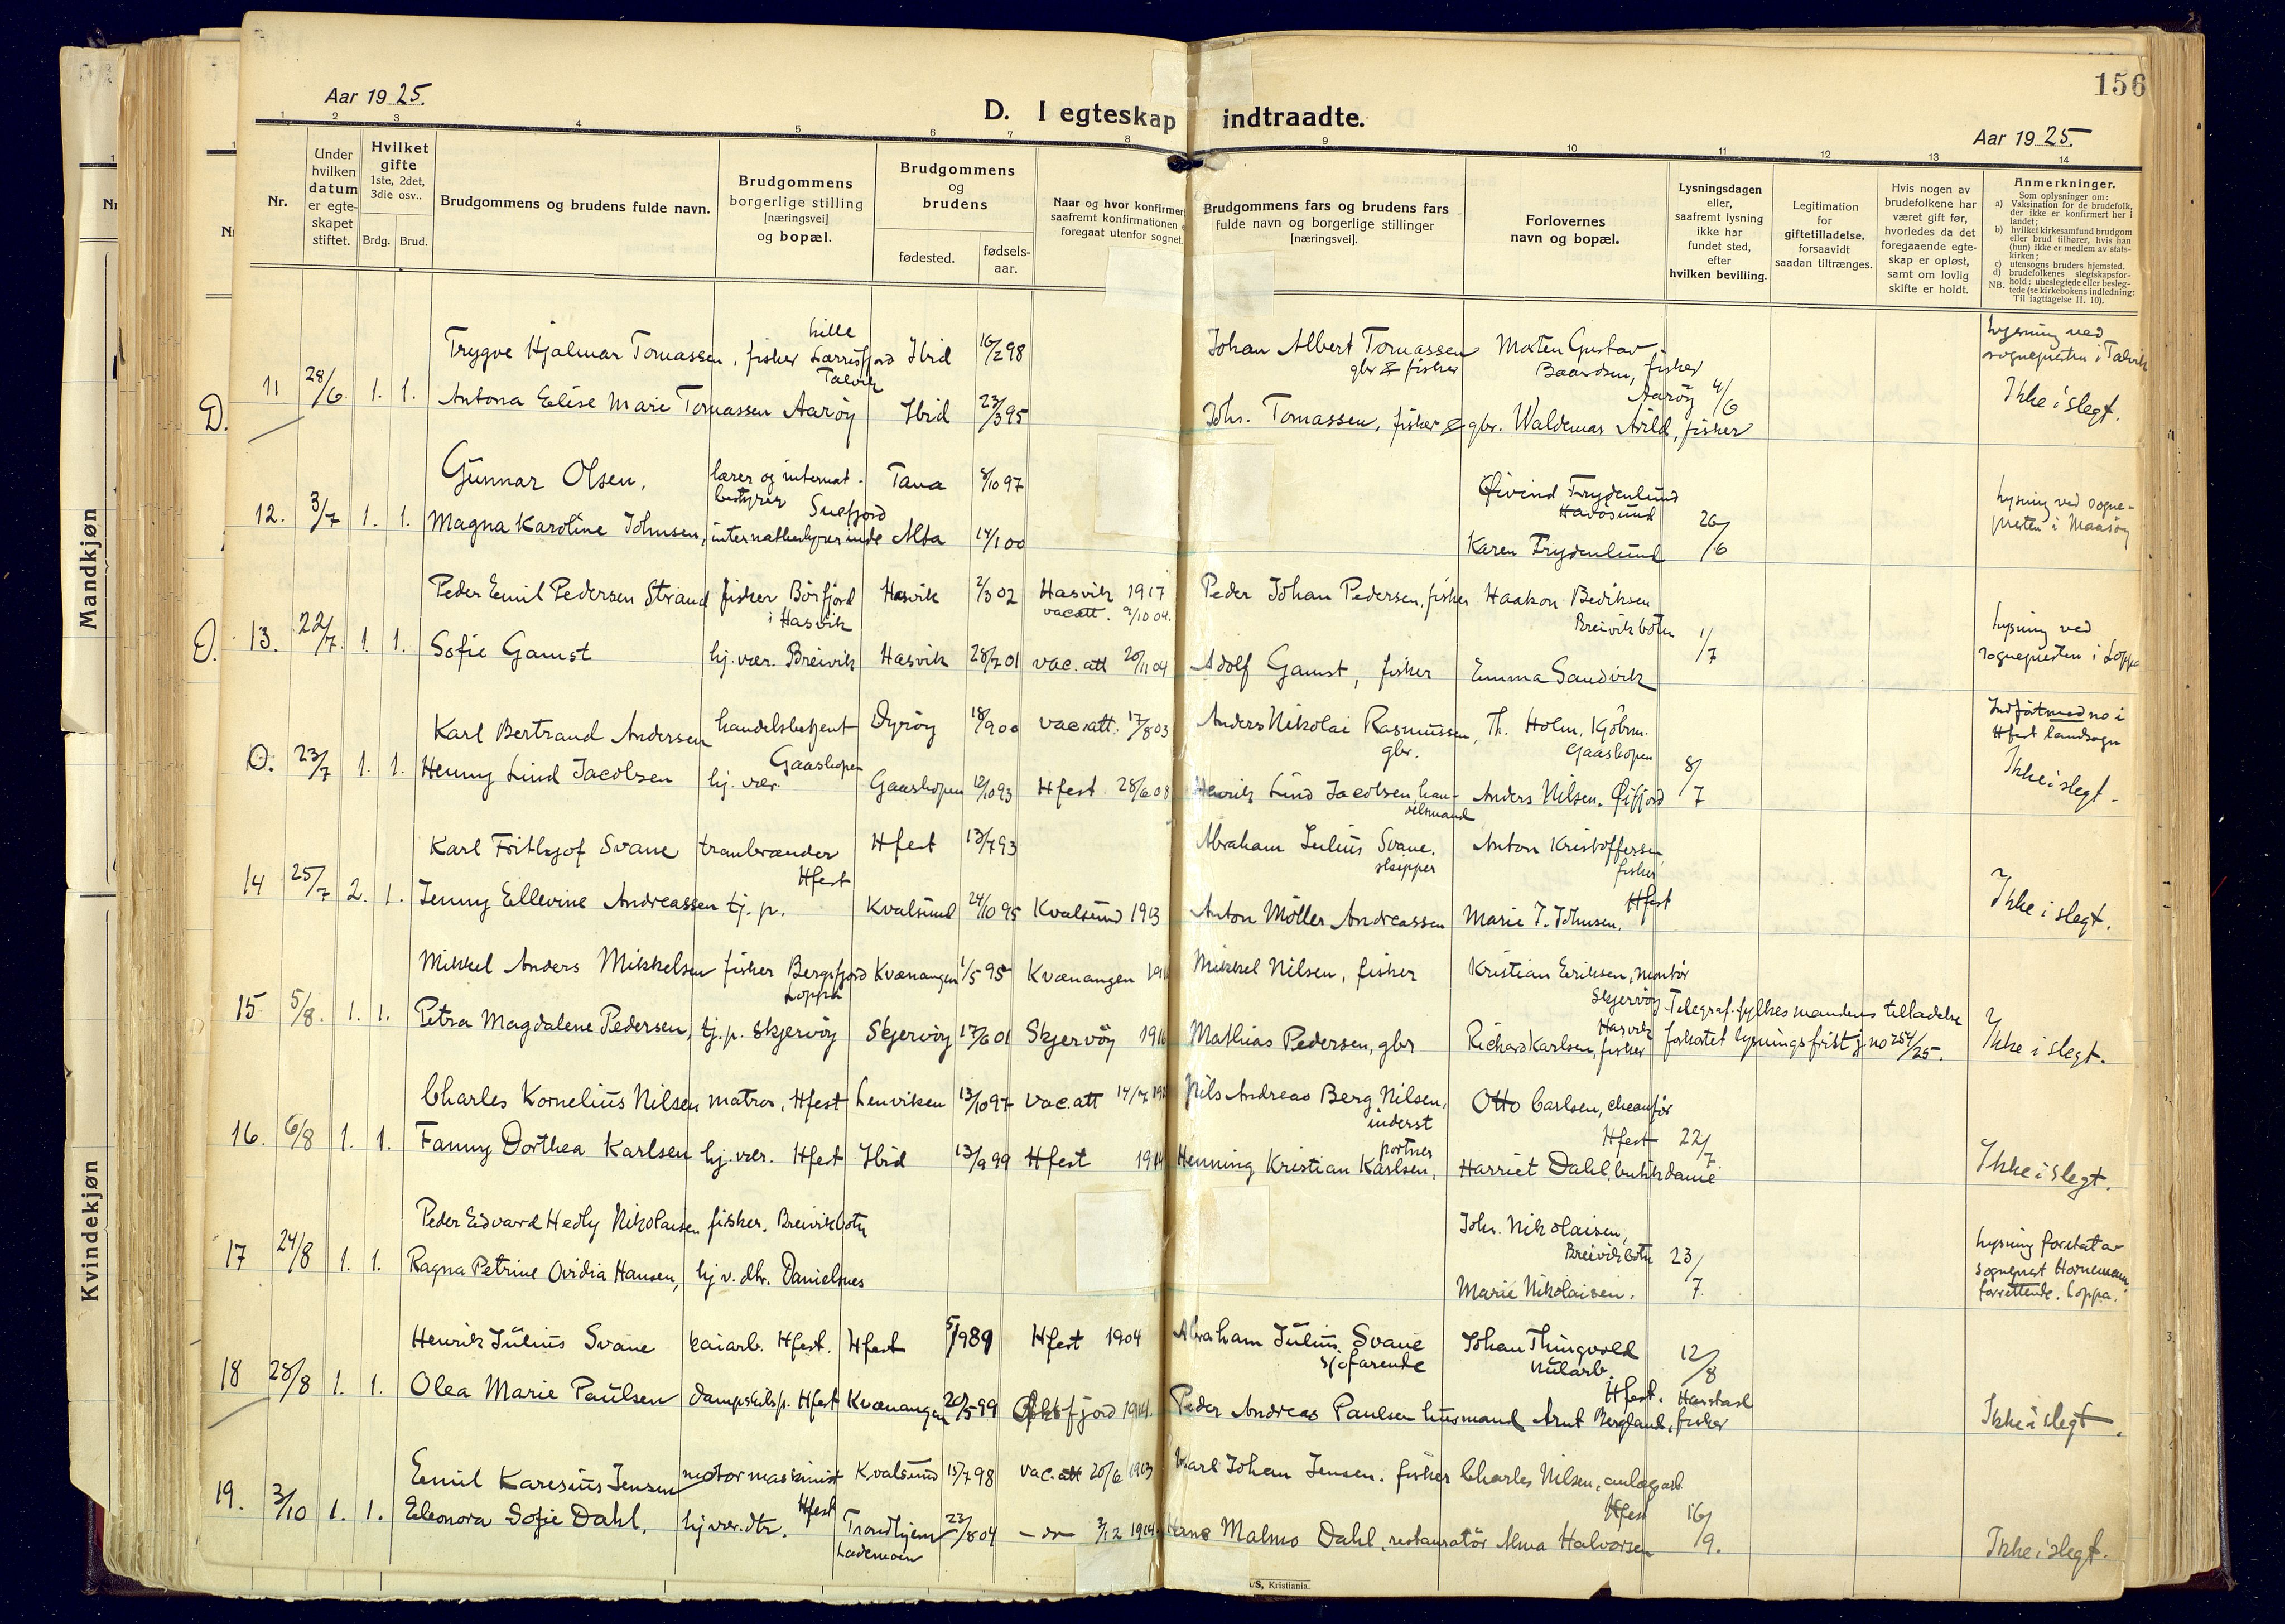 156
Aar 1925.
D. I egteskap indtraadte.
Aar 1925.
1 2 3 4 5 6 7 8 9 10 11 12 13 14
Nr.
Under hvilken datum er egteskapet stiftet.
Hvilket gifte 1ste, 2det, 3die osv..
Brdg. Brud.
Brudgommens og brudens fulde navn.
Brudgommens borgerlige stilling [næringsvei] og bopæl.
Brudgommens og brudens
fødested. fødsels-aar.
Naar og hvor konfirmert
saafremt konfirmationen
foregaat utenfor sognet.
Brudgommens fars og brudens fars
fulde navn og borgerlige stillinger
[næringsvei].
Forlovernes
navn og bopæl.
Lysningsdagen
eller,
saafremt lysning
ikke har
fundet sted,
efter
hvilken bevilling.
Legitimation
for
giftetilladelse,
forsaavidt
saadan tiltrænges.
Hvis nogen av
brudefolkene har
været gift før,
hvorledes da det
foregaaende egte-
skap er opløst,
samt om lovlig
skifte er holdt.
Anmerkninger.
Som oplysninger om:
a) Vaksination for de brudefolk,
der ikke er konfirmert her i
landet;
b) hvilket kirkesamfund brudgom
eller brud tilhører, hvis han
(hun) ikke er medlem av stats-
kirken;
c) utensogns bruders hjemsted.
d) brudefolkenes slegtskapsfor-
hold: ubeslegtede eller besleg-
NB. tede (se kirkebokens indledning:
Til iagttagelse II. 10).
Mandkjøn
Kvindekjøn
D. 11 28/6 1. 1. Trygve Hjalmar Tomassen, fisher Lille Lerrisfjord Talvik Ibid 16/2 98 Johan Albert Tomassen gbr & fisker Morten Gustav Baardsen, fisker Aarøy 4/6 Lysning ved sognepresten i Talvik
Antona Elise Marie Tomassen Aarøy Ibid 23/3 95 Johs. Tomassen, fisker & gbr. Waldemar Arild, fisker Ikke i slegt.
12. 3/7 1. 1. Gunnar Olsen, lærer og internat-bestyrer Snefjord Tana 8/10 97 Øivind Frydenlund Havøsund 26/6 Lysning ved sogne-presten i Maasøy
Magna Karoline Johnsen, internatbestyrerinde Alta 14/1 00 Karen Frydenlund
13. 22/7. 1. 1. Peder Emil Pedersen Strand fisker Børfjord i Hasvik Hasvik 2/3 02 Hasvik 1917 vac att. 9/10 04. Peder Johan Pedersen, fisker Haakon Bediksen Breivikbotn 1/7 Lysning ved sognepresten i Loppa
Sofie Gamst hj. vær. Breivik Hasvik 28/7 01 vac. att 20/11 04 Adolf Gamst, fisker Emma Sandvik
O. 23/7 1. 1. Karl Bertrand Andersen handelsbetjent Gaashopen Dyrøy 18/9 00 vac. att. 17/8 03 Anders Nikolai Rasmussen, gbr. Th. Holm, Kjøbm. Gaashopen 8/7 Indført med no i Hfest landsogn
Henny Lind Jacobsen hj. vær. Gaashopen 12/10 93 Hfest 28/6 08 Henrik Lind Jacobsen han-delsmand Anders Nilsen. Øifjord Ikke i slegt.
14 25/7 2. 1. Karl Frithjof Svane tranbrænder Hfest Hfest 13/7 93 Abraham Julius Svane. skipper Anton Kristoffersen fisker Hfest
Jenny Ellevine Andreassen tj. p. Kvalsund 24/10 95 Kvalsund 1913 Anton Møller Andreassen Marie J. Johnsen. Ikke i slegt.
15 5/8. 1. 1. Mikkel Anders Mikkelsen fisker Bergsfjord Loppa Kvænangen 1/5 95 Kvænangen Mikkel Nilsen, fisker Kristian Eriksen, montør Skjervøy
Petra Magdalene Pedersen, tj. p. Skjervøy Skjervøy 17/6 01 Skjervøy 1916 Mathias Pedersen, gbr Richard Karlsen, fisker Hasvik Telegraf. fylkesmandens tilladelse forkortet lysningsfrist j. no 254/25. Ikke i slegt.
16. 6/8 1. 1. Charles Kornelius Nilsen matros, Hfest Lenviken 13/10 97 vac. att Nils Andreas Berg Nilsen, inderst Otto Carlsen, cheaufør Hfest 22/7.
Fanny Dorthea Karlsen hj. vær. Hfest Ibid 13/9 99 Hfest 1914 Henning Kristian Karlsen, portner Harriet Dahl, butikdame Ikke i slegt.
17 24/8 1. 1. Peder Edvard Hedly Nikolaisen fisker. Breivikbotn Joh. Nikolaisen, Breivikbotn 23/7. Lysning foretat av sogneprest Hornemann, forrettende. Loppa.
Ragna Petrine Ovidia Hansen, hj v. dtr. Danielsnes Marie Nikolaisen.
18 28/8 1. 1. Henrik Julius Svane kaiarb. Hfest. Hfest 5/9 89 Hfest 1904 Abraham Julius Svane sjøfarende Johan Thingvold Hfest. 12/8
Olea Marie Paulsen dampskibsp. Hfest Kvænangen 20/5 99 Øksfjord 1914. Peder Andreas Paulsen husmand Arnt Bergland, fisker Harstad Ikke i slegt.
19. 3/10 1. 1. Emil Karesius Jensen motormaskinist Hfest Kvalsund 15/7 98 vac. att 20/6 1913 Karl Johan Jensen. fisker Charles Nilsen, anlægsarb Hfest 16/9.
Eleonora Sofie Dahl, hj vær. dtr. Trondhjem Lademoen 23/8 04 – do – 3/12 1914. Hans Malmo Dahl, restauratør Alma Halvorsen Ikke i slegt.
A/S, Kristiania.